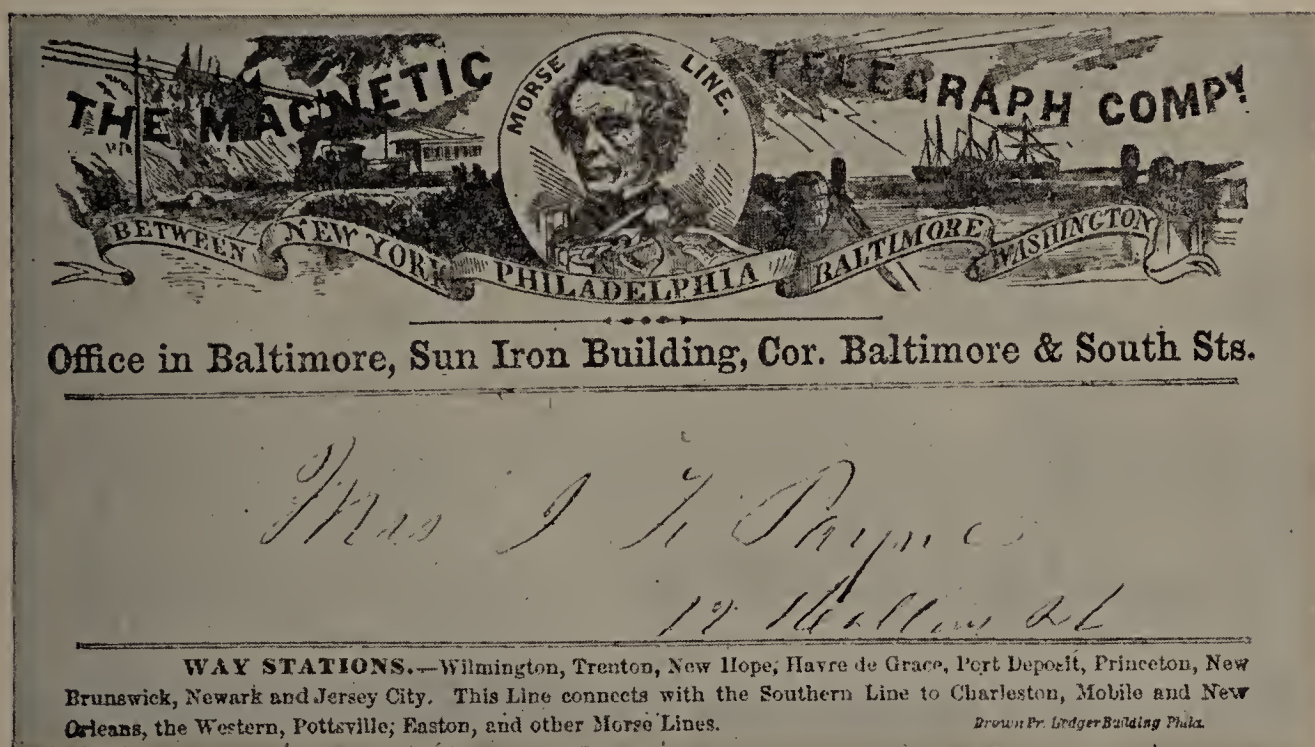 THE MAGNETIC TELEGRAPH COMPY
MORSE LINE.
BETWEEN NEW YORK PHILADELPHIA BALTIMORE WASHINGTON
Office in Baltimore, Sun Iron Building, Cor. Baltimore & South Sts.
Mrs J Payne
St
WAY STATIONS.—Wilmington, Trenton, New Hope, Havre de Grace, Port Deposit, Princeton, New
Brunswick, Newark and Jersey City. This Line connects with the Southern Line to Charleston, Mobile and New
Orleans, the Western, Pottsville, Easton, and other Morse Lines.
Brown Pr. Ledger Building Phila.